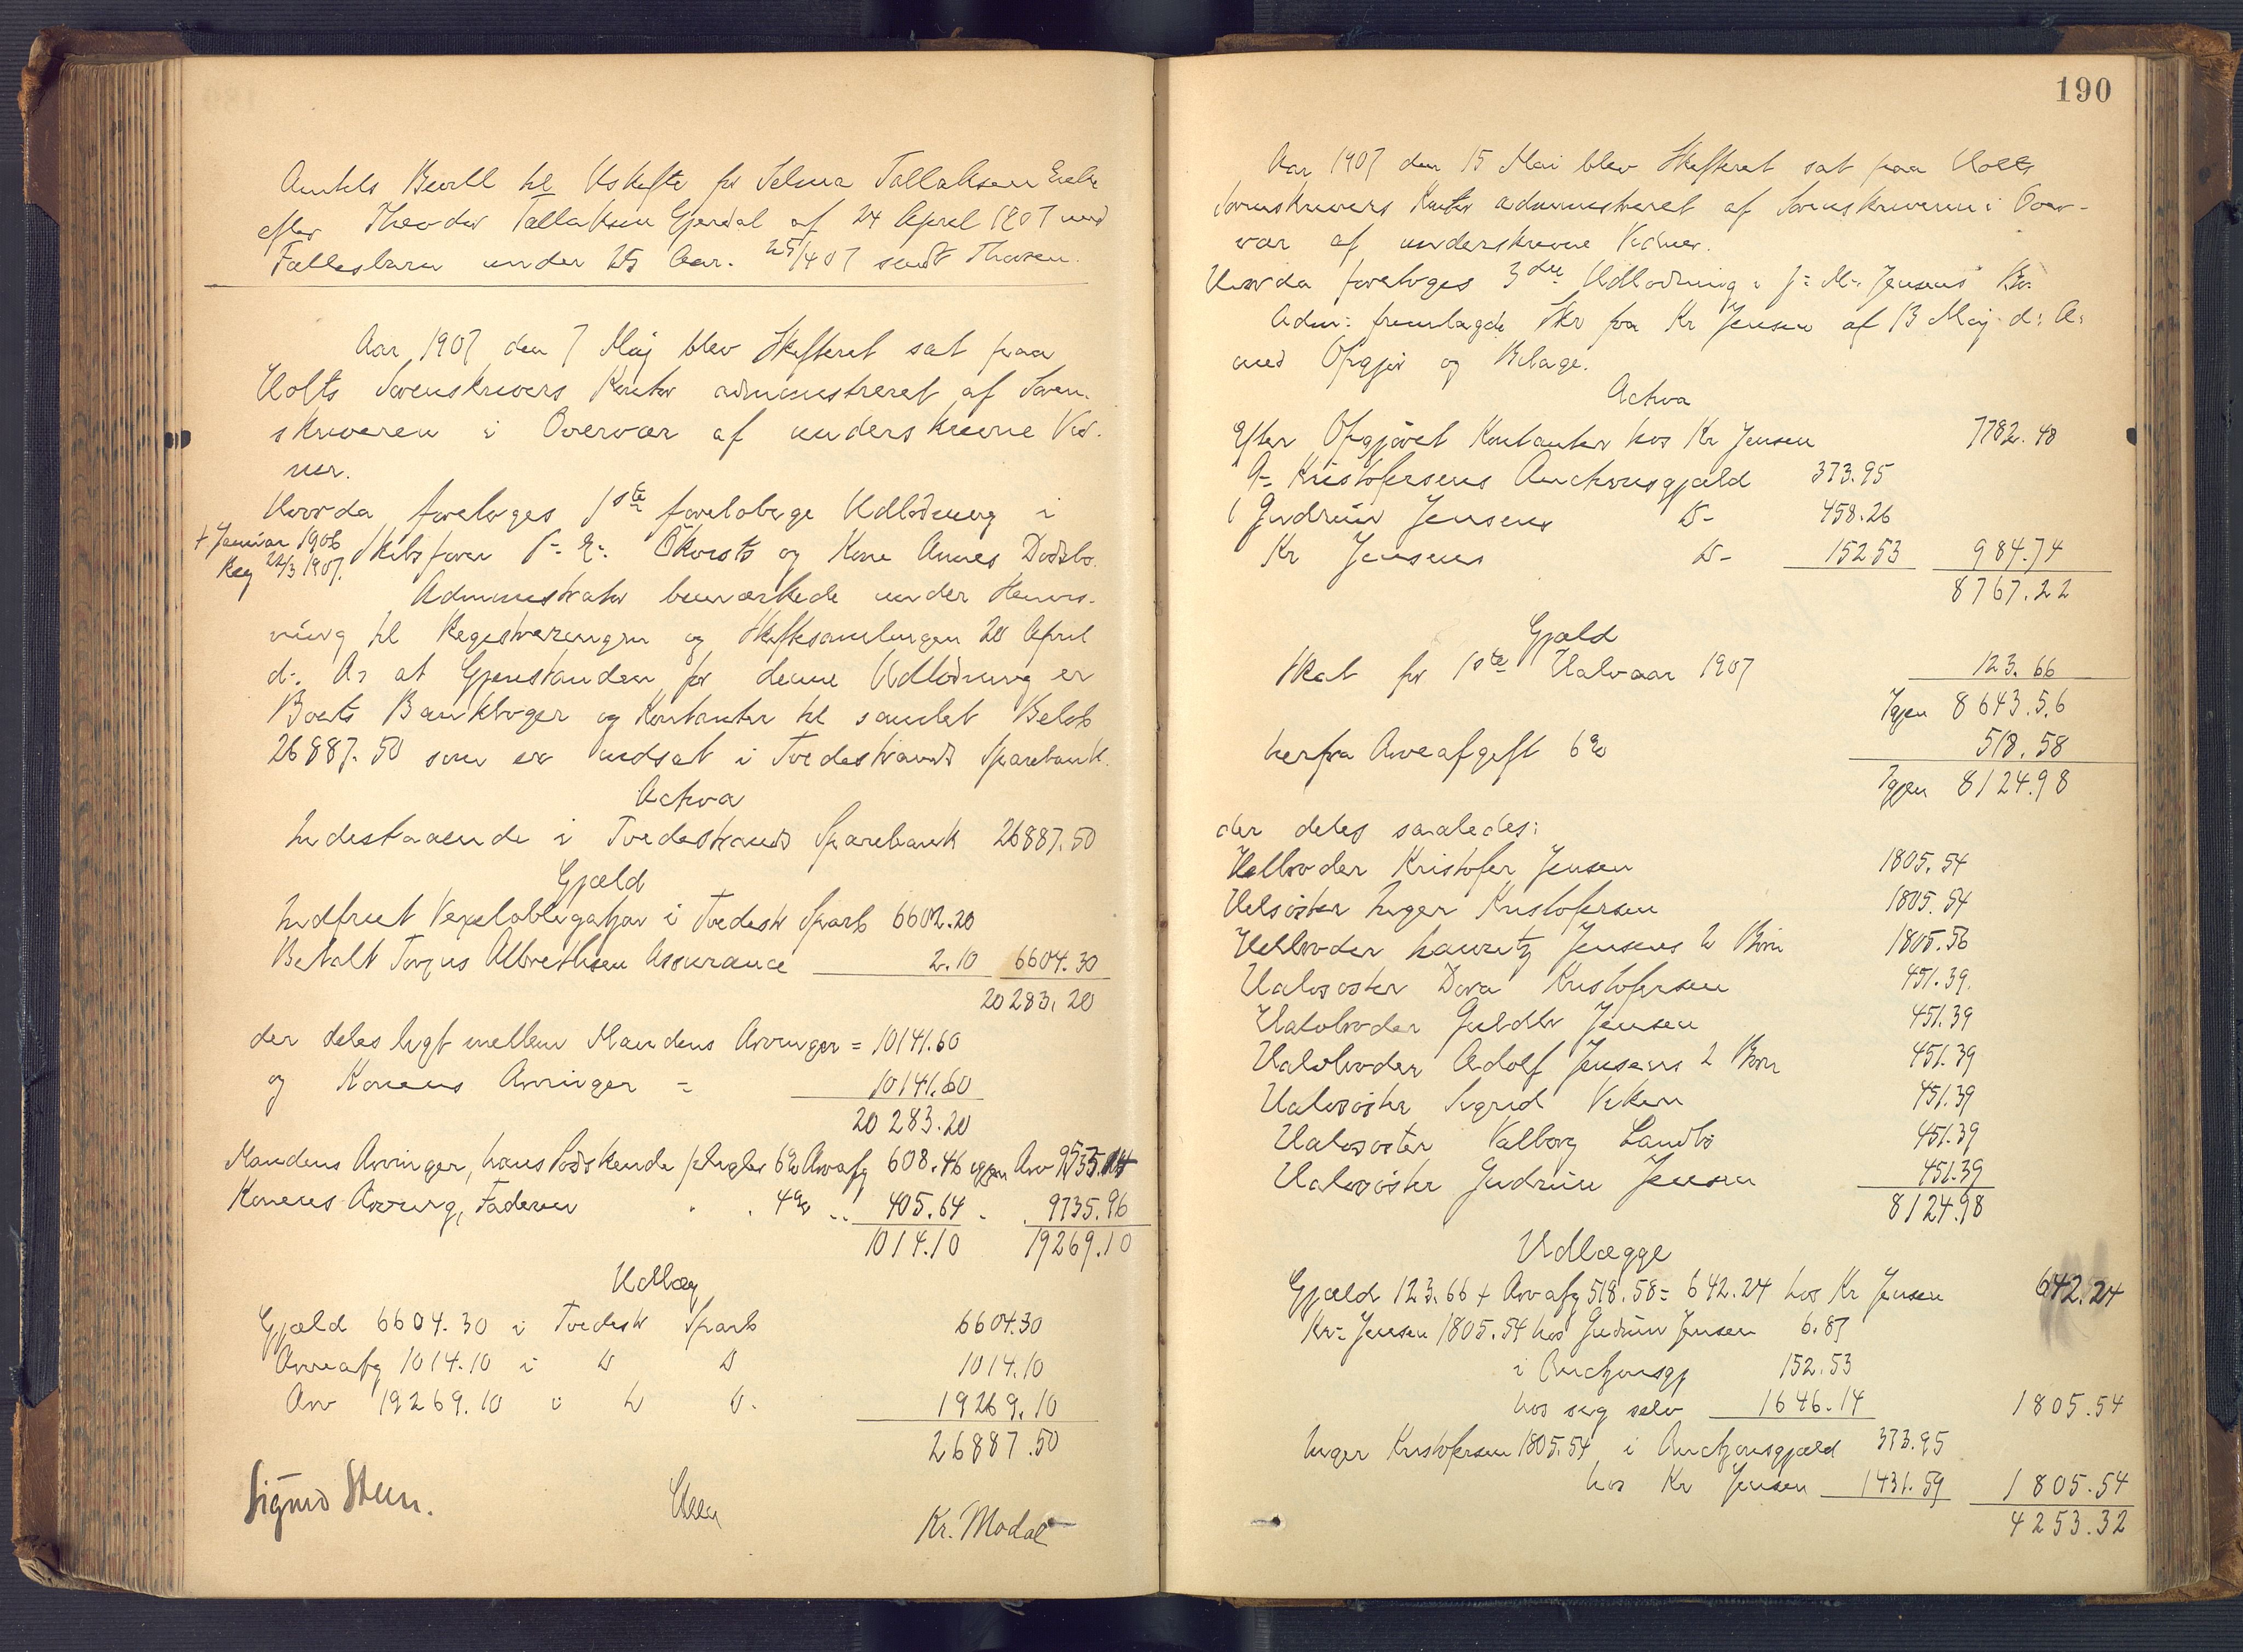 Amtets Bevill til Uskifte for Selma Tallaksen Enke
efter Theodor Tallaksen Gjerdal af 24 April 1907 med
Fællesbarn under 25 Aar. 25/4 07 sendt Thorsen.
Aar 1907 den 7 Maj blev Skifteret sat paa
Holts Sorenskrivers Kontor administreret af Soren-
skriveren i Overvær af underskrevne Vid-
ner.
Hvorda foretoges 1ste foreløbige Udlodning i
+ Januar 1906
Reg 22/3 1907.
Skibsfører Økvists og Kone Annes Dødsbo.
Administrator bemærkede under Henvis-
ning til Registreringen og Skiftesamlingen 20 April
d. A. at Gjenstanden for denne Udlodning er
Boets Bankbøger og Kontanter til samlet Beløb
26887.50 som er indsat i Tvedestrands Sparebank.
Activa
Indestaaende i Tvedestrands Sparebank 26887.50
Gjæld
Indfriet Vexelobligasjon i Tvedestr Sparb 6602.20
Betalt Torjus Albrethsen Assurance 2.10 6604.30
20283.20
der deles ligt mellem Mandens Arvinger = 10141.60
og Konens Arvinger = 10141.60
20283.20
Mandens Arvinger, hans Sødskende 6% Arvafg 608.46 igjen Arv
Konens Arving, Faderen 4% 405.64 9735.96
1014.10 19269.10
Udlæg
Gjæld 6604.30 i Tvedestr Sparb 6604.30
Arveafg 1014.10 i D D 1014.10
Arv 19269.10 i D D. 19269.10
26887.50
Kr. Modal
190
Aar 1907 den 15 Mai blev Skifteret sat paa Holts
Sorenskrivers Kontor administreret af Sorenskriveren i Over-
vær af underskrevne Vidner.
Hvorda foretoges 3die Udlodning i J. M. Jensens Bo.
Adm: fremlagde Skr fra Kr Jensen af 13 Maj d: A:
med Opgjør og Bilage.
Activa
Efter Opgjøret Kontanter hos Kr Jensen 7782.48
Kristofersens Auctionsgjæld 373.95
Gudrun Jensens D- 458.26
Kr Jensens D- 152 53 984.74
8767.22
Gjæld
Skat for 1ste Halvaar 1907 123.66
Igjen 8643.56
herfra Arveafgift 6% 518.58
Igjen 8124.98
der deles saaledes:
Helbroder Kristofer Jensen 1805.54
Helsøster Inger Kristofersen 1805.54
Helbroder Lauritz Jensens 2 Børn 1805.56
Halvsøster Dora Kristofersen 451.39.
Halvbroder Jensen 451.39
Halvbroder Adolf Jensens 2 Børn 451.39
Halvsøster Sigrid Viken 451.39
Halvsøster Valborg Landbø 451.39
Halvsøster Gudrun Jensen 451.39
8124.98
Udlægge
Gjæld 123.66 + Arvafg 518.58 = 642.24 hos Kr Jensen 642.24
Kr. Jensen 1805.54 hos Gudrun Jensen 6.87
i Auctjonsgj 152.53
hos sig selv 1646.14 1805.54
Inger Kristofersen 1805.54 i Auctjonsgjæld 373.95
hos Kr Jensen 1431.59 1805.54
4253.32